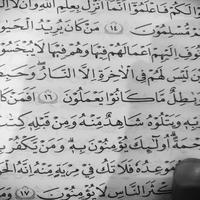 لَكُمْ فَٱعْلَمُوٓا۟ أَنَّمَآ أُنزِلَ بِعِلْمِ ٱللَّهِ وَأَن لَّآ
مُّسْلِمُونَ ١٤ مَن كَانَ يُرِيدُ ٱلْحَيَوٰ
نُوَفِّ إِلَيْهِمْ أَعْمَٰلَهُمْ فِيهَا وَهُمْ فِيهَا لَا يُبْخَسُو
نَ لَيْسَ لَهُمْ فِى ٱلْءَاخِرَةِ إِلَّا ٱلنَّارُ ۖ وَحَبِطَ
بَٰطِلٌ مَّا كَانُوا۟ يَعْمَلُونَ ١٦ أَفَمَن كَا
بِّهِۦ وَيَتْلُوهُ شَاهِدٌ مِّنْهُ وَمِن قَبْلِهِۦ كِتَٰ
رَحْمَةً ۚ أُو۟لَٰٓئِكَ يُؤْمِنُونَ بِهِۦ ۚ وَمَن يَكْفُرْ بِ
مَوْعِدُهُۥ ۚ فَلَا تَكُ فِى مِرْيَةٍ مِّنْهُ ۚ إِنَّهُ ٱلْحَ
كْثَرَ ٱلنَّاسِ لَا يُؤْمِنُونَ ١٧ وَمَنْ